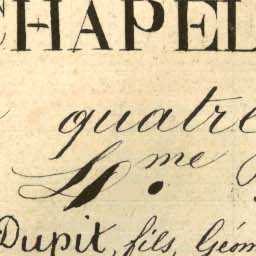 CHAPEL
quatre
4.me
Dupit, fils, Géom